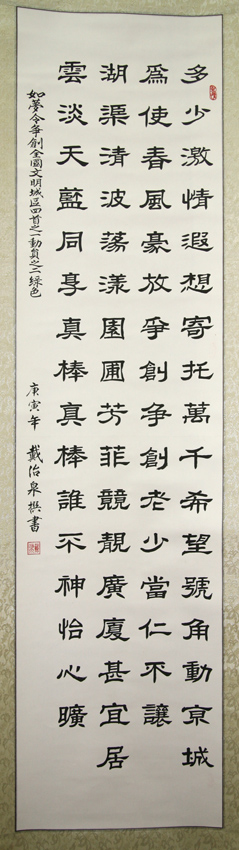 多少激情遐想寄托萬千希望號角動京城
爲使春風豪放爭創爭創老少當仁不讓
湖渠清波蕩漾園圃芳菲競靚廣廈甚宜居
雲淡天藍同享真棒真棒誰不神怡心曠
如夢令爭創全國文明城區四首之一動員之二綠色
庚寅年 戴治泉撰書